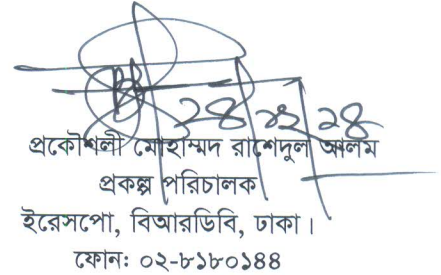 ২৪/১২/২৪
প্রকৌশলী মোহাম্মদ রাশেদুল আলম
প্রকল্প পরিচালক
ইরেসপো, বিআরডিবি, ঢাকা।
ফোন: ০২-৮১৮০১৪৪